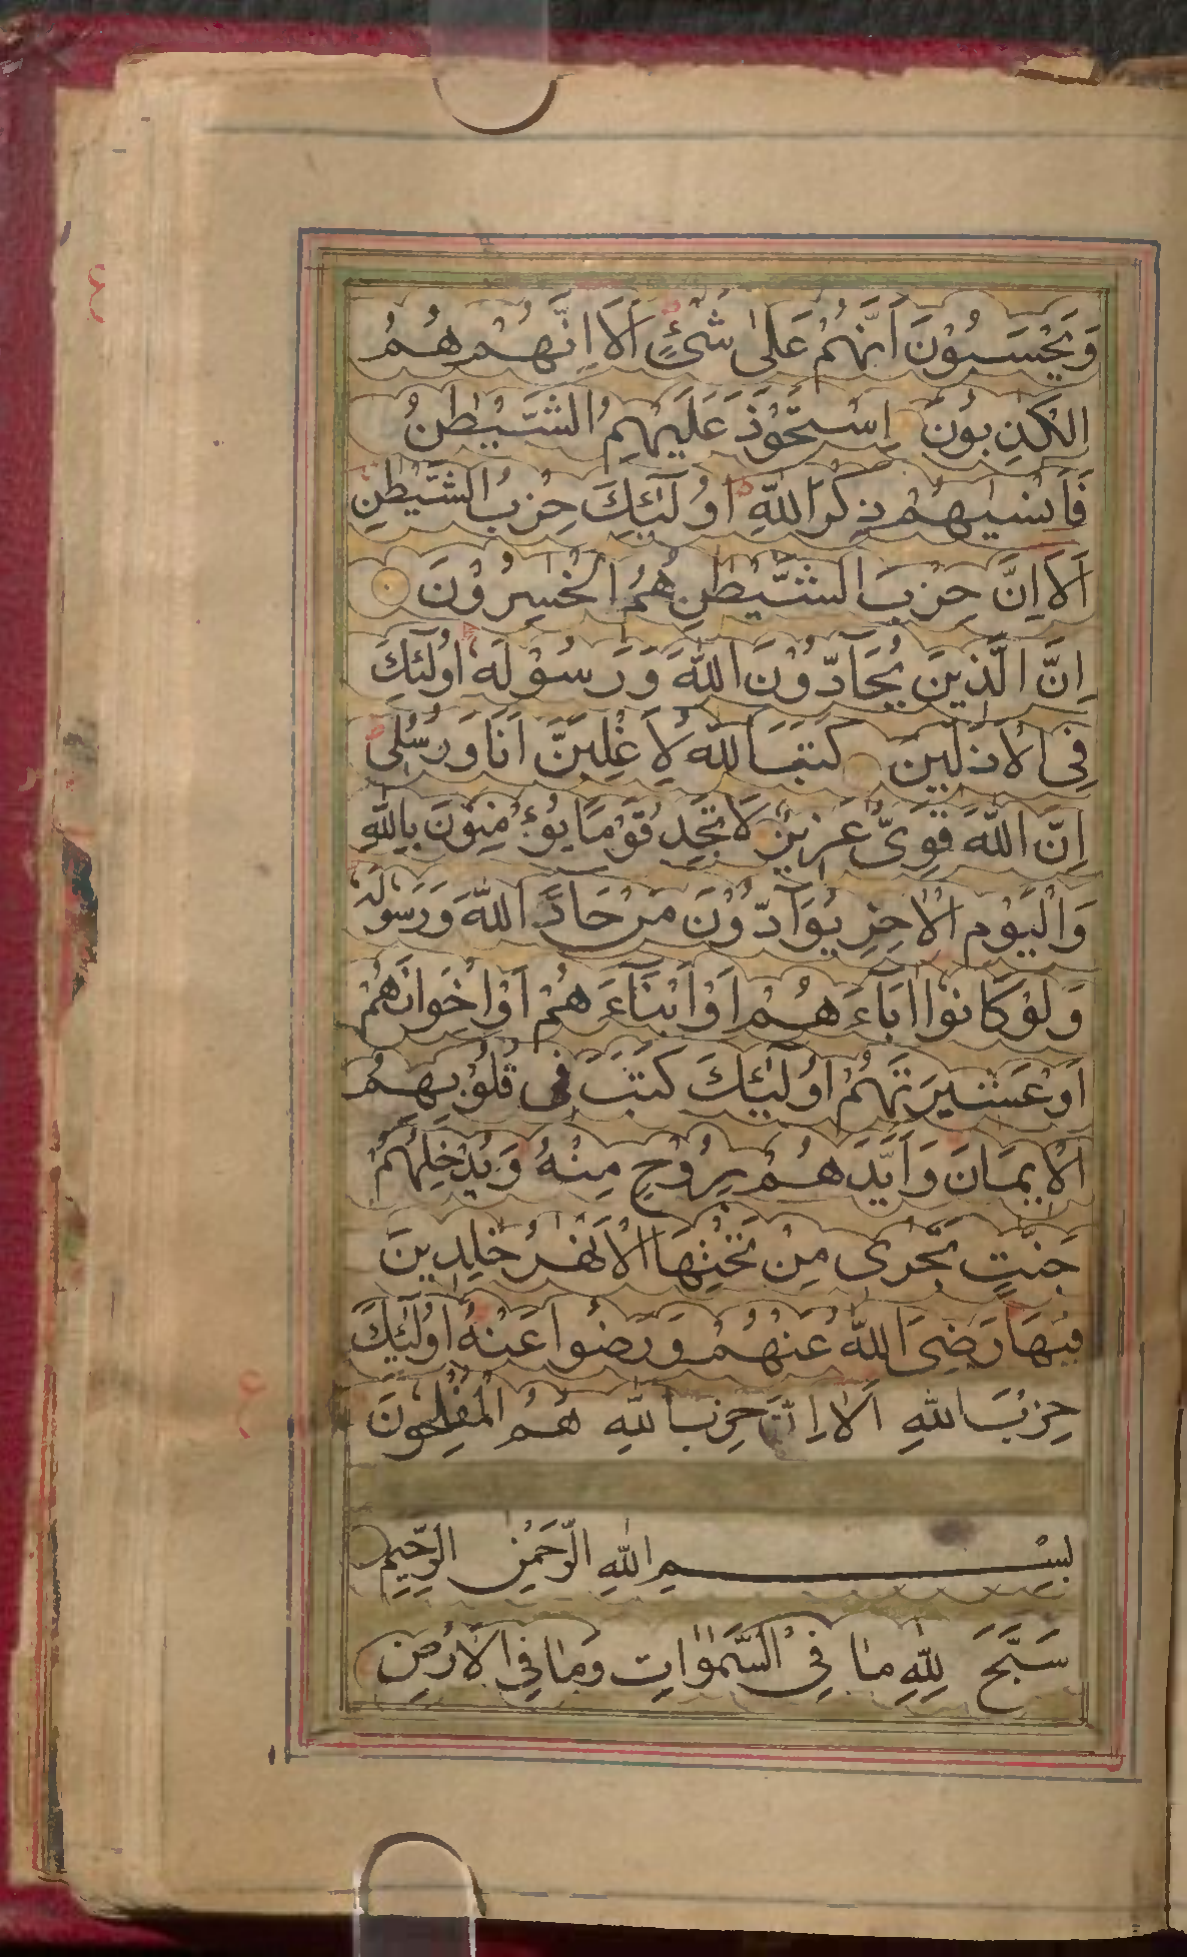 وَيَحْسَبُوْنَ اَنَّهُمْ عَلٰى شَیْءٍ اَلَا اِنَّهُمْ هُمُ
الْكٰذِبُوْنَ اِسْتَحْوَذَ عَلَيْهِمُ الشَّيْطٰنُ
فَاَنْسٰيهُمْ ذِكْرَ اللّٰهِ اُولٰٓئِكَ حِزْبُ الشَّيْطٰنِ
اَلَا اِنَّ حِزْبَ الشَّيْطٰنِ هُمُ الْخٰسِرُوْنَ
اِنَّ الَّذِينَ يُحَآدُّوْنَ اللّٰهَ وَرَسُوْلَهٗ اُولٰٓئِكَ
فِی الْاَذَلِّينَ كَتَبَ اللّٰهُ لَاَغْلِبَنَّ اَنَا وَرُسُلِی
اِنَّ اللّٰهَ قَوِیٌّ عَزِيزٌ لَا تَجِدُ قَوْمًا يُؤْمِنُوْنَ بِاللّٰهِ
وَالْيَوْمِ الْاٰخِرِ يُوَآدُّوْنَ مَنْ حَآدَّ اللّٰهَ وَرَسُولَهٗ
وَلَوْ كَانُوا اٰبَآءَهُمْ اَوْ اَبْنَآءَهُمْ اَوْ اِخْوَانَهُمْ
اَوْ عَشِيرَتَهُمْ اُولٰٓئِكَ كَتَبَ فِی قُلُوْبِهِمُ
الْاِيمَانَ وَاَيَّدَهُمْ بِرُوْحٍ مِنْهُ وَيُدْخِلُهُمْ
جَنّٰتٍ تَجْرِی مِنْ تَحْتِهَا الْاَنْهٰرُ خٰلِدِينَ
فِيهَا رَضِیَ اللّٰهُ عَنْهُمْ وَرَضُوا عَنْهُ اُولٰٓئِكَ
حِزْبُ اللّٰهِ اَلَا اِنَّ حِزْبَ اللّٰهِ هُمُ الْمُفْلِحُوْنَ
بِسْمِ اللّٰهِ الرَّحْمٰنِ الرَّحِيمِ
سَبَّحَ لِلّٰهِ مَا فِی السَّمٰوَاتِ وَمَا فِی الْاَرْضِ